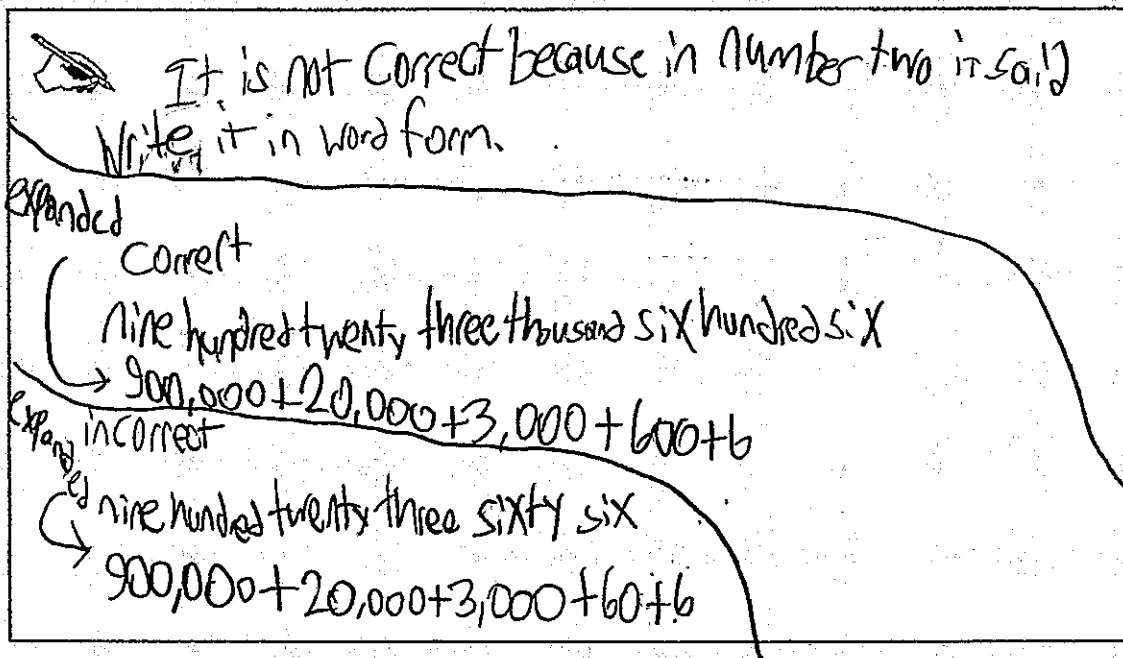 It is not correct because in number two it said
Write it in word form.
expanded
correct
nine hundred twenty three thousand six hundred six
900,000+20,000+3,000+600+6
expanded incorrect
nine hundred twenty three sixty six
900,000+20,000+3,000+60+6